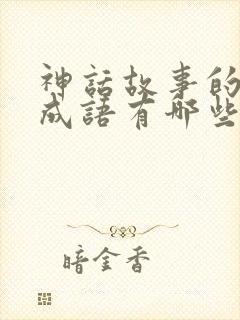 神話故事的
成語有哪些
暗金香